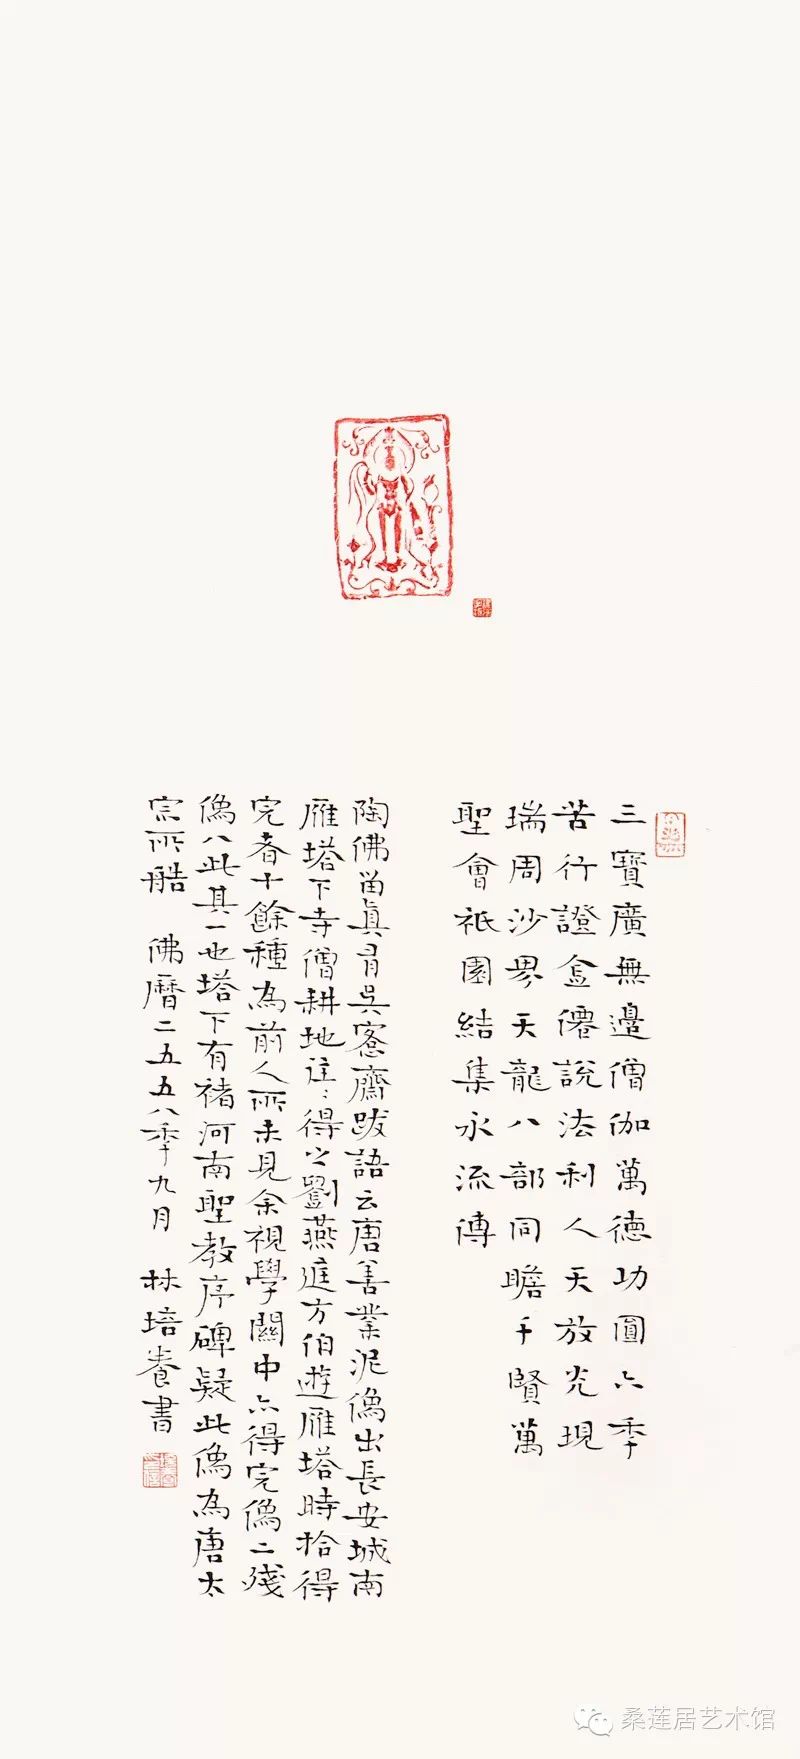 三寶廣無邊僧伽萬德功圓六季
苦行證金僊說法利人天放光現
瑞周沙界天龍八部同瞻千賢萬
聖會祇園結集永流傳
陶佛留真有吳愙齋跋語云唐善業泥像出長安城南
雁塔下寺僧耕地往〻得之劉燕庭方伯遊雁塔時拾得
完者十餘種為前人所未見余視學關中亦得完像二殘
像八此其一也塔下有褚河南聖教序碑疑此像為唐太
宗所造 佛曆二五五八季九月 林培養書
桑莲居艺术馆